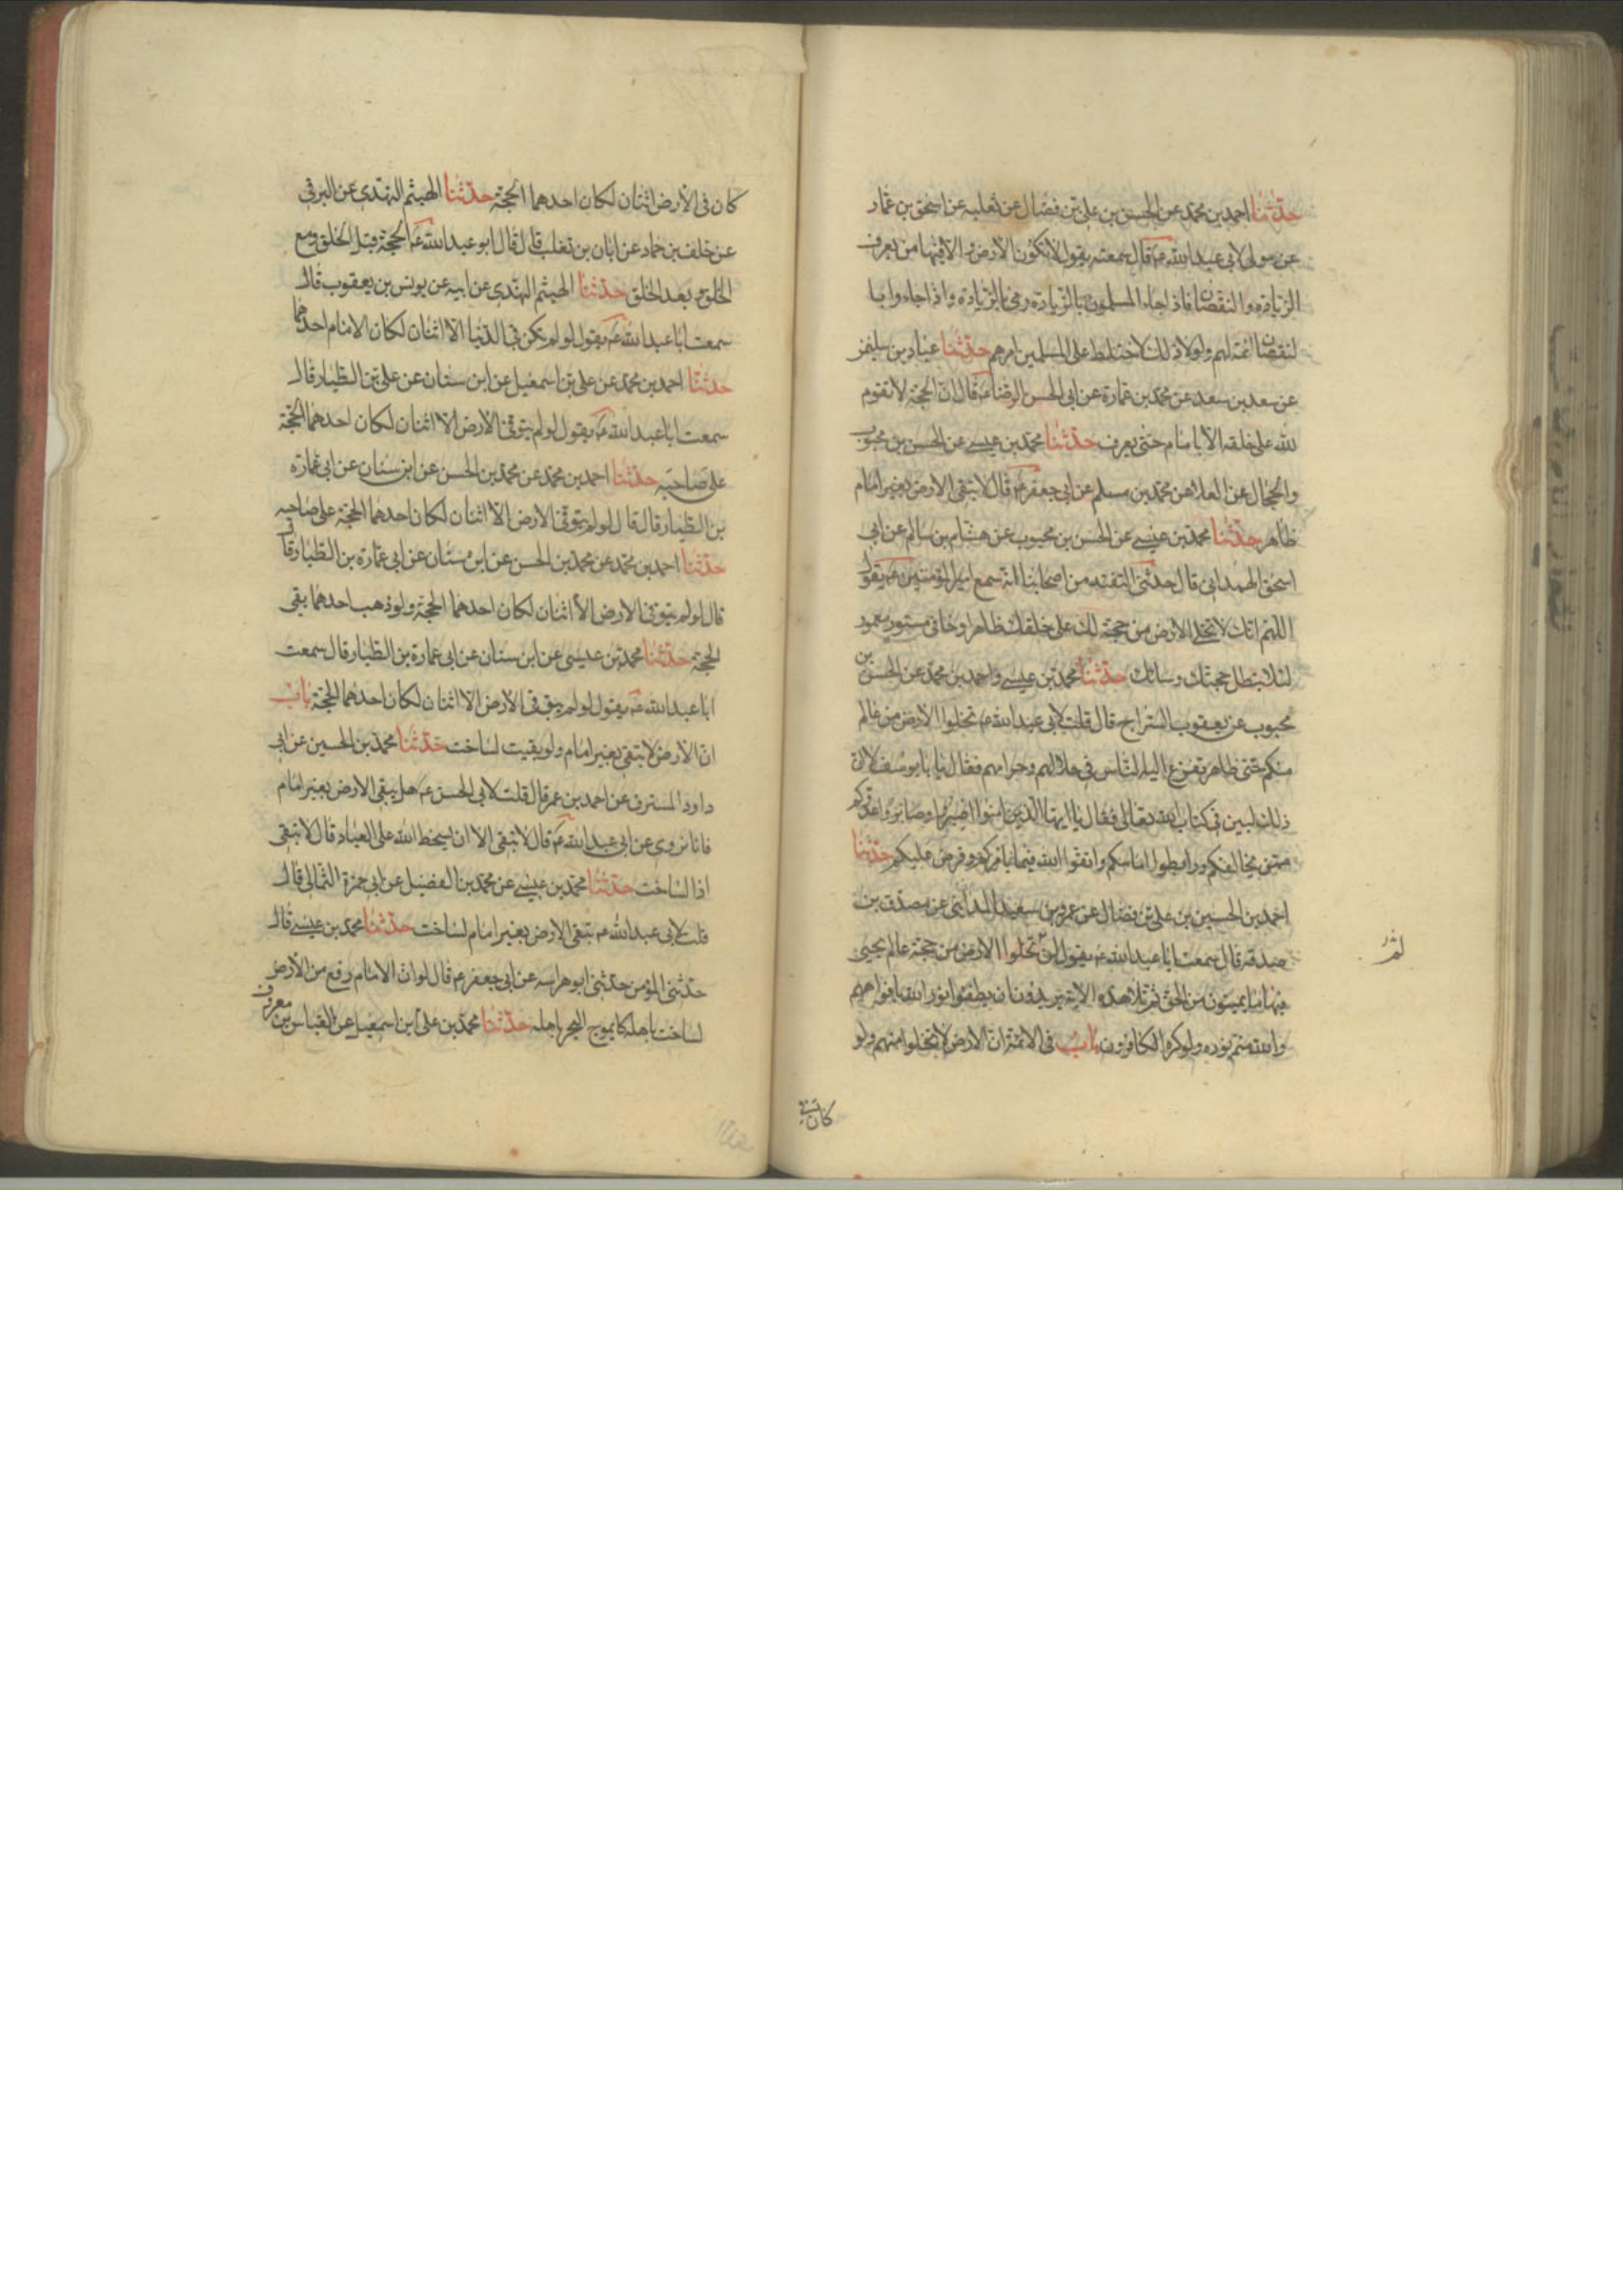 حدثنا احمد بن محمد عن الحسن بن على بن فضال عن ثعلبه عن اسحق بن عمار
عن مولى لابى عبد الله ع قال سمعته يقول لا تكون الارض الا و فيها من يعرف
الزيادة و النقصان فاذا جاء المسلمون بالزيادة رمى بالزيادة و اذا جاءوا با
لنقصان اتمه لهم ولولا ذلك لاختلط على المسلمين امرهم حدثنا عباد بن سليمن
عن سعد بن سعد عن محمد بن عمارة عن ابى الحسن الرضا ع قال ان الحجة لا تقوم
لله على خلقه الا بامام حتى يعرف حدثنا محمد بن عيسى عن الحسن بن محبوب
والحجال عن العلا عن محمد بن مسلم عن ابى جعفر ع قال لا تبقى الارض بغير امام
ظاهر حدثنا محمد بن عيسى عن الحسن بن محبوب عن هشام بن سالم عن ابى
اسحق الهمدانى قال حدثنى الثقة من اصحابنا انه سمع امير المؤمنين ع يقول
اللهم انك لا تخلى الارض من حجة لك على خلقك ظاهر او خافى مغمور
لئلا تبطل حجتك و بيناتك حدثنا محمد بن عيسى و احمد بن محمد عن الحسن بن
محبوب عن يعقوب السراج قال قلت لابى عبد الله ع تخلوا الارض من عالم
منكم حتى ظاهر تفزع اليه الناس فى حلالهم و حرامهم فقال يا با يوسف لا ان
ذلك لبين فى كتاب الله تعالى فقال يا ايها الذين امنوا اصبروا و صابروا عدوكم
ممن يخالفكم ورابطوا امامكم واتقوا الله فيما يامركم و فرض عليكم حدثنا
احمد بن الحسين بن على بن فضال عن عمرو بن سعيد المداينى عن مصدق بن
صدقه قال سمعت ابا عبد الله ع يقول لن تخلوا الارض من حجة عالم يحيى
فيها ما يميتون من الحق ثم تلا هذه الاية يريدون ان يطفؤا نور الله بافواههم
والله متم نوره ولو كره الكافرون باب فى الائمة ان الارض لا تخلوا منهم ولو
كان فى
كان فى الارض اثنان لكان احدهما الحجة حدثنا الهيثم النهدى عن البرقى
عن خلف بن حماد عن ابان بن تغلب قال قال ابو عبد الله ع الحجة قبل الخلق ومع
الخلق و بعد الخلق حدثنا الهيثم النهدى عن ابيه عن يونس بن يعقوب قال
سمعت ابا عبد الله ع يقول لو لم يكن فى الدنيا الا اثنان لكان الامام احدهما
حدثنا احمد بن محمد عن على بن اسمعيل عن ابن سنان عن على بن الطيار قال
سمعت ابا عبد الله ع يقول لو لم يبق فى الارض الا اثنان لكان احدهما الحجة
على صاحبه حدثنا احمد بن محمد عن محمد بن الحسن عن ابن سنان عن ابى عمارة
بن الطيار قال قال لو لم يبق فى الارض الا اثنان لكان احدهما الحجة على صاحبه
حدثنا احمد بن محمد عن محمد بن الحسن عن ابن مسنان عن ابى عمارة بن الطيار قال
قال لو لم يبق فى الارض الا اثنان لكان احدهما الحجة ولو ذهب احدهما بقى
الحجة حدثنا محمد بن عيسى عن ابن سنان عن ابى عمارة بن الطيار قال سمعت
ابا عبد الله ع يقول لو لم يبق فى الارض الا اثنان لكان احدهما الحجة باب
ان الارض لا تبقى بغير امام ولو بقيت لساخت حدثنا محمد بن الحسين عن ابى
داود المسترق عن احمد بن عمر قال قلت لابى الحسن ع هل يبقى الارض بغير امام
فانا نروى عن ابى عبد الله ع قال لا تبقى الا ان يسخط الله على العباد قال لا تبقى
اذا لساخت حدثنا محمد بن عيسى عن محمد بن الفضيل عن ابى حمزة الثمالى قال
قلت لابى عبد الله ع تبقى الارض بغير امام لساخت حدثنا محمد بن عيسى قال
حدثنى المؤمن حدثنى ابو هراسه عن ابى جعفر ع قال لو ان الامام رفع من الارض
لساخت باهله كما يموج البحر باهله حدثنا محمد بن على ابن اسمعيل عن العباس بن معروف